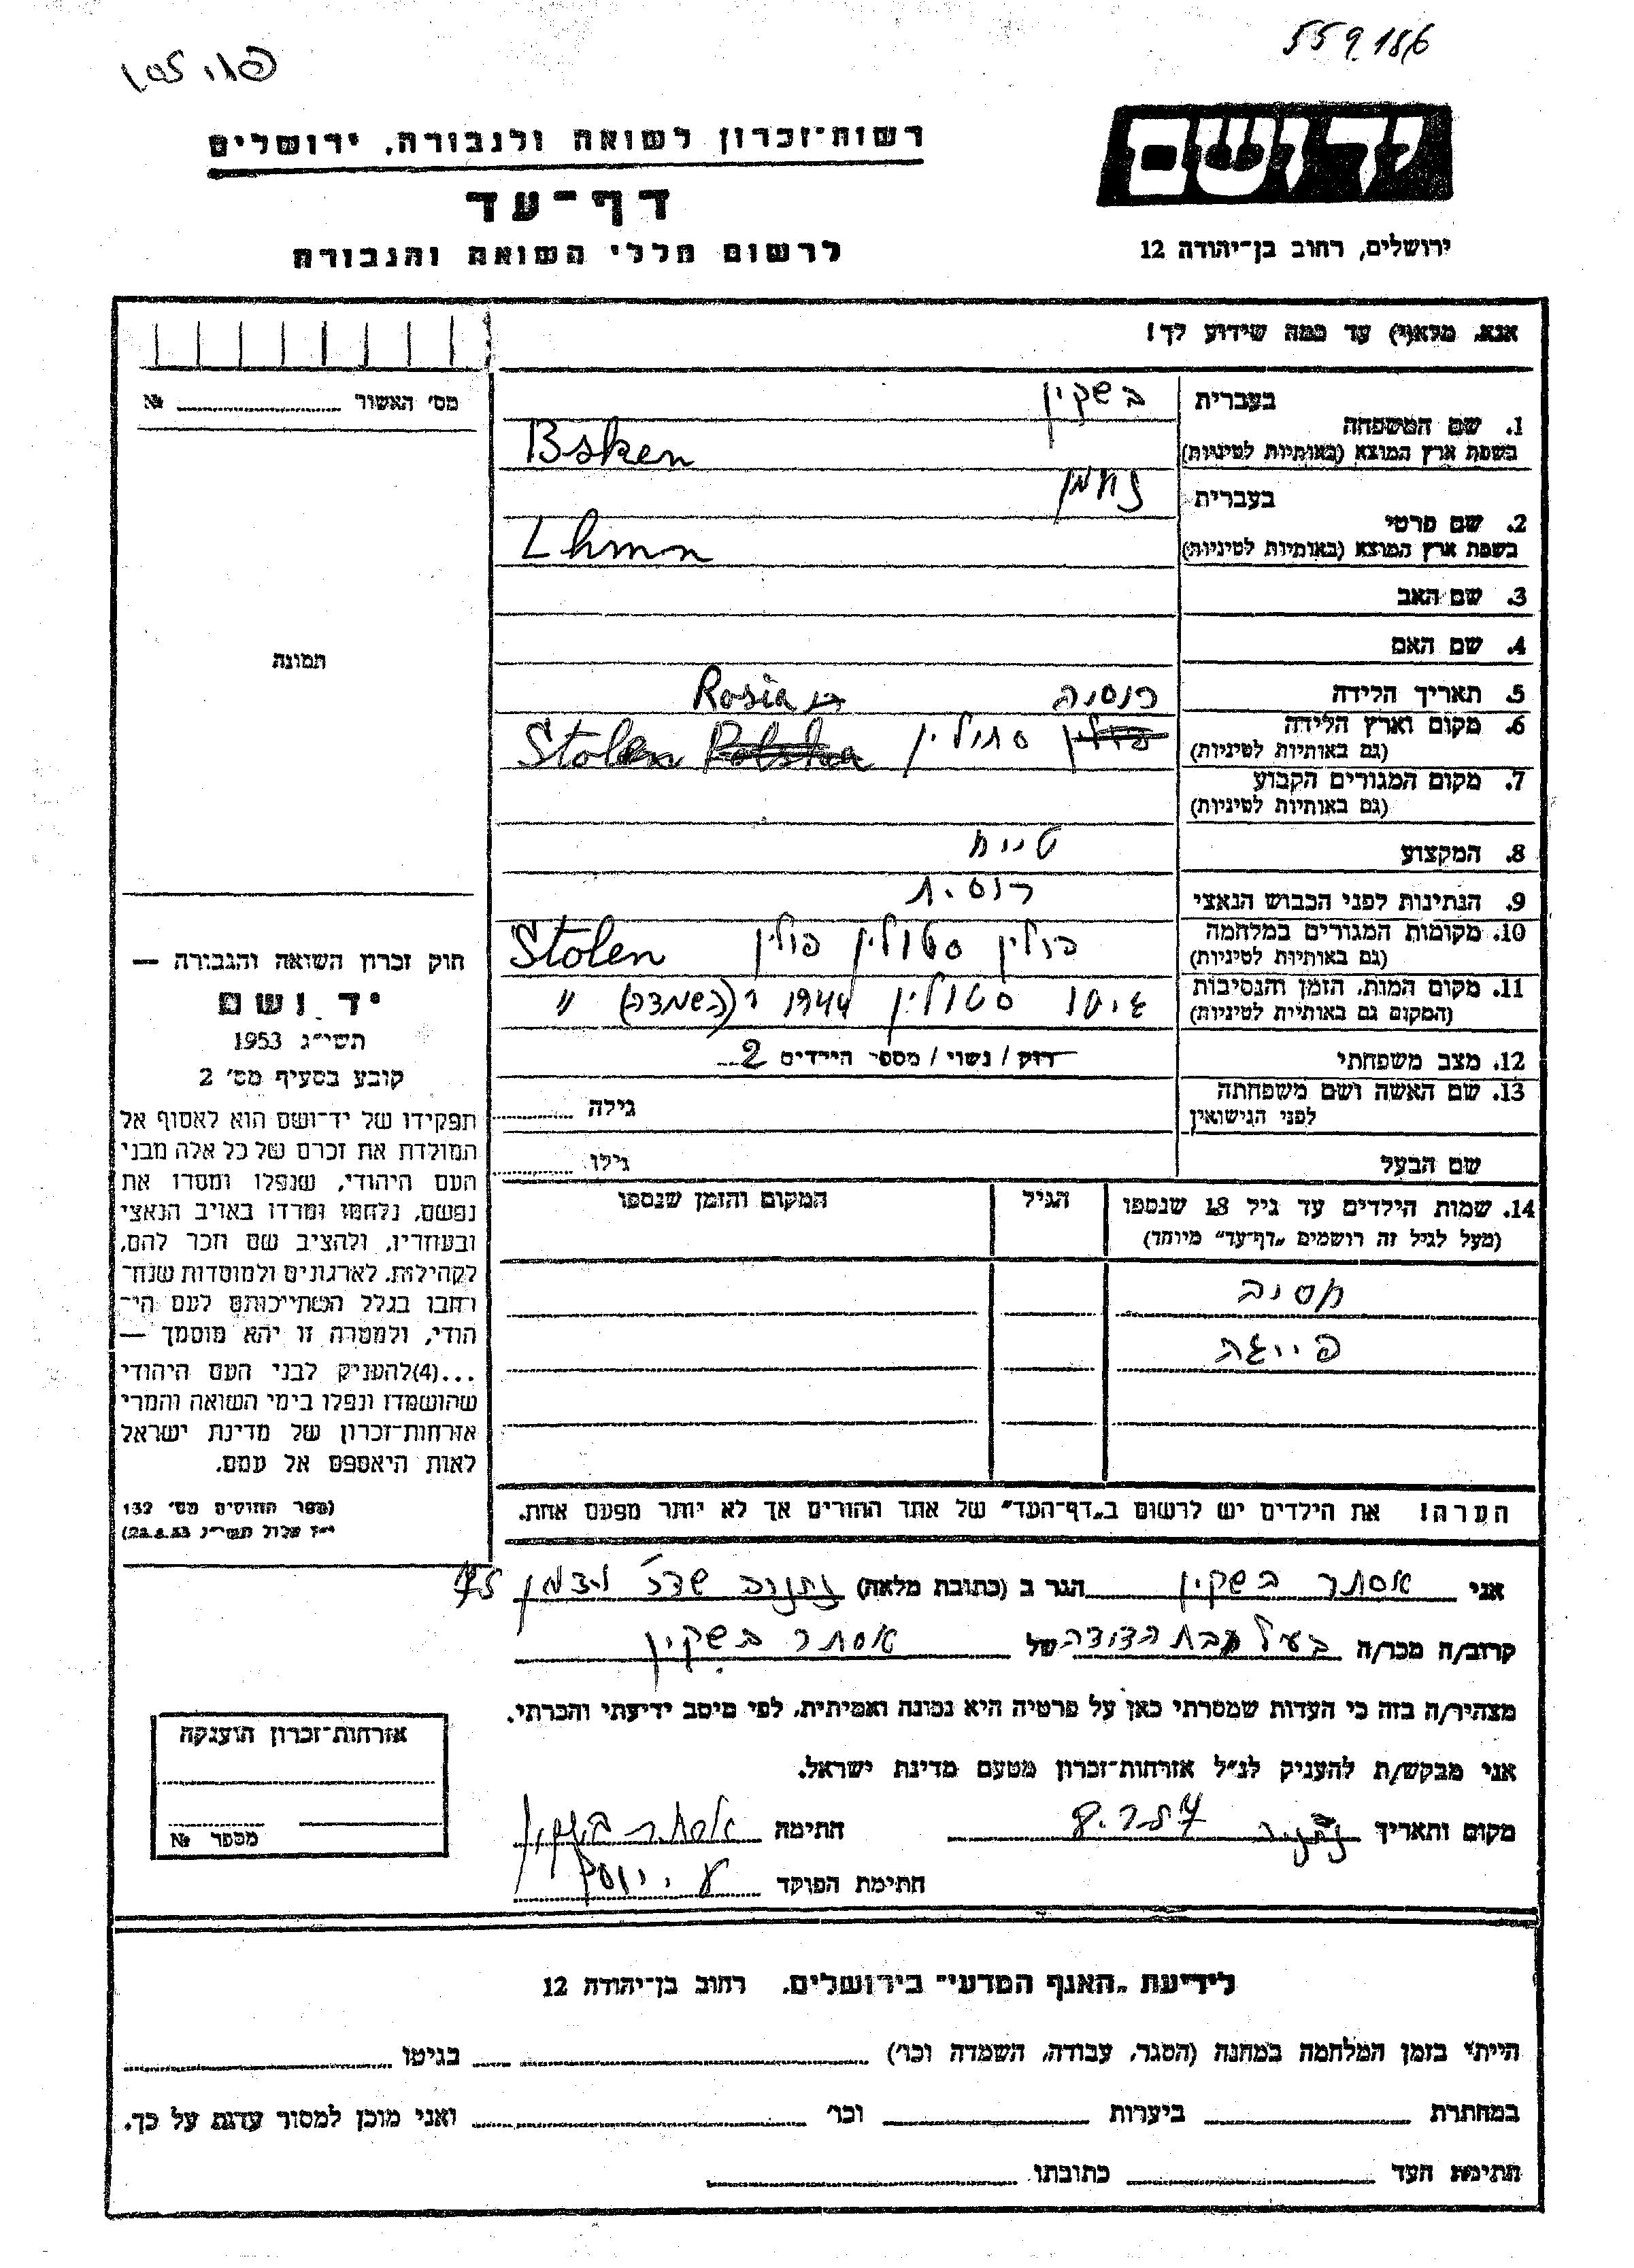 559186
רשות־זכרון לשואה ולגבורה, ירושלים
יד ושם
דף־עד
לרשום חללי השואה והגבורה
ירושלים, רחוב בן־יהודה 12
אנא, מלא(י) עד כמה שידוע לך!
מס' האשור № 
1. שם המשפחה בעברית בשקין
בשפת ארץ המוצא (באותיות לטיניות) Bsken
2. שם פרטי בעברית נחמן
בשפת ארץ המוצא (באותיות לטיניות) Lhmn
3. שם האב
4. שם האם
תמונה
5. תאריך הלידה
רוסיה Rosia
6. מקום וארץ הלידה (גם באותיות לטיניות) פולין סתולין Stolen Polska
7. מקום המגורים הקבוע
(גם באותיות לטיניות)
8. המקצוע טייח
9. הנתינות לפני הכבוש הנאצי רוסית
10. מקומות המגורים במלחמה פולין סטולין פולין Stolen
(גם באותיות לטיניות)
11. מקום המות, הזמן והנסיבות גיטו סטולין 1944 (השמדה) "
(המקום גם באותיות לטיניות)
12. מצב משפחתי רווק / נשוי / מספר הילדים 2
13. שם האשה ושם משפחתה גילה
לפני הנישואין
שם הבעל גילו
14. שמות הילדים עד גיל 18 שנספו הגיל המקום והזמן שנספו
(מעל לגיל זה רושמים "דף־עד" מיוחד)
אסיה
פייגה
הערה! את הילדים יש לרשום ב"דף־העד" של אחד ההורים אך לא יותר מפעם אחת.
חוק זכרון השואה והגבורה —
יד ושם
תשי"ג 1953
קובע בסעיף מס' 2
תפקידו של יד־ושם הוא לאסוף אל
המולדת את זכרם של כל אלה מבני
העם היהודי, שנפלו ומסרו את
נפשם, נלחמו ומרדו באויב הנאצי
ובעוזריו, ולהציב שם וזכר להם,
לקהילות, לארגונים ולמוסדות שנח־
רבו בגלל השתייכותם לעם הי־
הודי, ולמטרה זו יהא מוסמך —
...(4) להעניק לבני העם היהודי
שהושמדו ונפלו בימי השואה והמרי
אזרחות־זכרון של מדינת ישראל
לאות היאספם אל עמם.
(ספר החוקים מס' 132
י"ז אלול תשי"ג 28.8.53)
אני אסתר בשקין הגר ב (כתובת מלאה) נתניה שדר' ויצמן
קרוב/ה מכר/ה בעל בת הדודה של אסתר בשקין
מצהיר/ה בזה כי העדות שמסרתי כאן על פרטיה היא נכונה ואמיתית, לפי מיטב ידיעתי והכרתי.
אני מבקש/ת להעניק לנ"ל אזרחות־זכרון מטעם מדינת ישראל.
מקום ותאריך נתניה חתימה אסתר בשקין
חתימת הפוקד
אזרחות־זכרון הוענקה
מספר №
לידיעת "האגף המדעי" בירושלים, רחוב בן־יהודה 12
הייתי בזמן המלחמה במחנה (הסגר, עבודה, השמדה וכו') בגיטו
במחתרת ביערות וכו' ואני מוכן למסור עדות על כך.
חתימת העד כתובתו